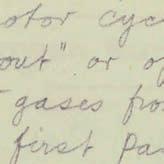 otor cyc
out" or o
gases fro
first Pa